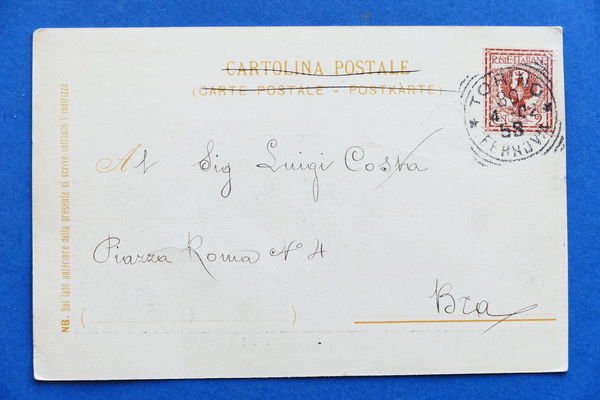 CARTOLINA POSTALE
(CARTE POSTALE - POSTKARTE)
POSTE ITALIANE
TORINO
4 02
53
* FERROVIA *
2
Al Sig Luigi Costa
Piazza Roma N° 4
Bra
( )
NB. Sul lato anteriore della presente si scrive soltanto l'indirizzo